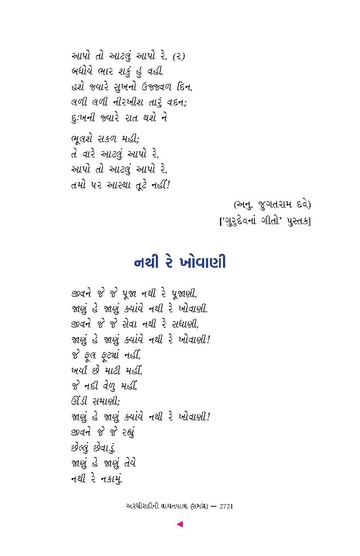 આપો તો આટલું આપો રે, (૨)
બધોયે ભાર શકું હું વહી.
હશે જ્યારે સુખનો ઉજ્જ્વળ દિન,
લળી લળી નીરખીશ તારું વદન;
દુઃખની જ્યારે રાત થશે ને
ભૂલશે સકળ મહી;
તે વારે આટલું આપો રે,
આપો તો આટલું આપો રે,
તમો પર આસ્થા તૂટે નહીં!
(અનુ. જુગતરામ દવે)
['ગુરુદેવનાં ગીતો' પુસ્તક]
નથી રે ખોવાણી
જીવને જે જે પૂજા નથી રે પૂજાણી,
જાણું હે જાણું ક્યાંયે નથી રે ખોવાણી.
જીવને જે જે સેવા નથી રે સધાણી,
જાણું હે જાણું ક્યાંયે નથી રે ખોવાણી!
જે ફૂલ ફૂટ્યાં નહીં,
ખર્યાં છે માટી મહીં,
જે નદી વેળુ મહીં,
ઊંડી સમાણી;
જાણું હે જાણું ક્યાંયે નથી રે ખોવાણી!
જીવને જે જે રહ્યું
છેલ્લું છેવાડું,
જાણું હે જાણું તેયે
નથી રે નકામું.
અરધી સદીની વાચનયાત્રા (સમગ્ર) — 2721